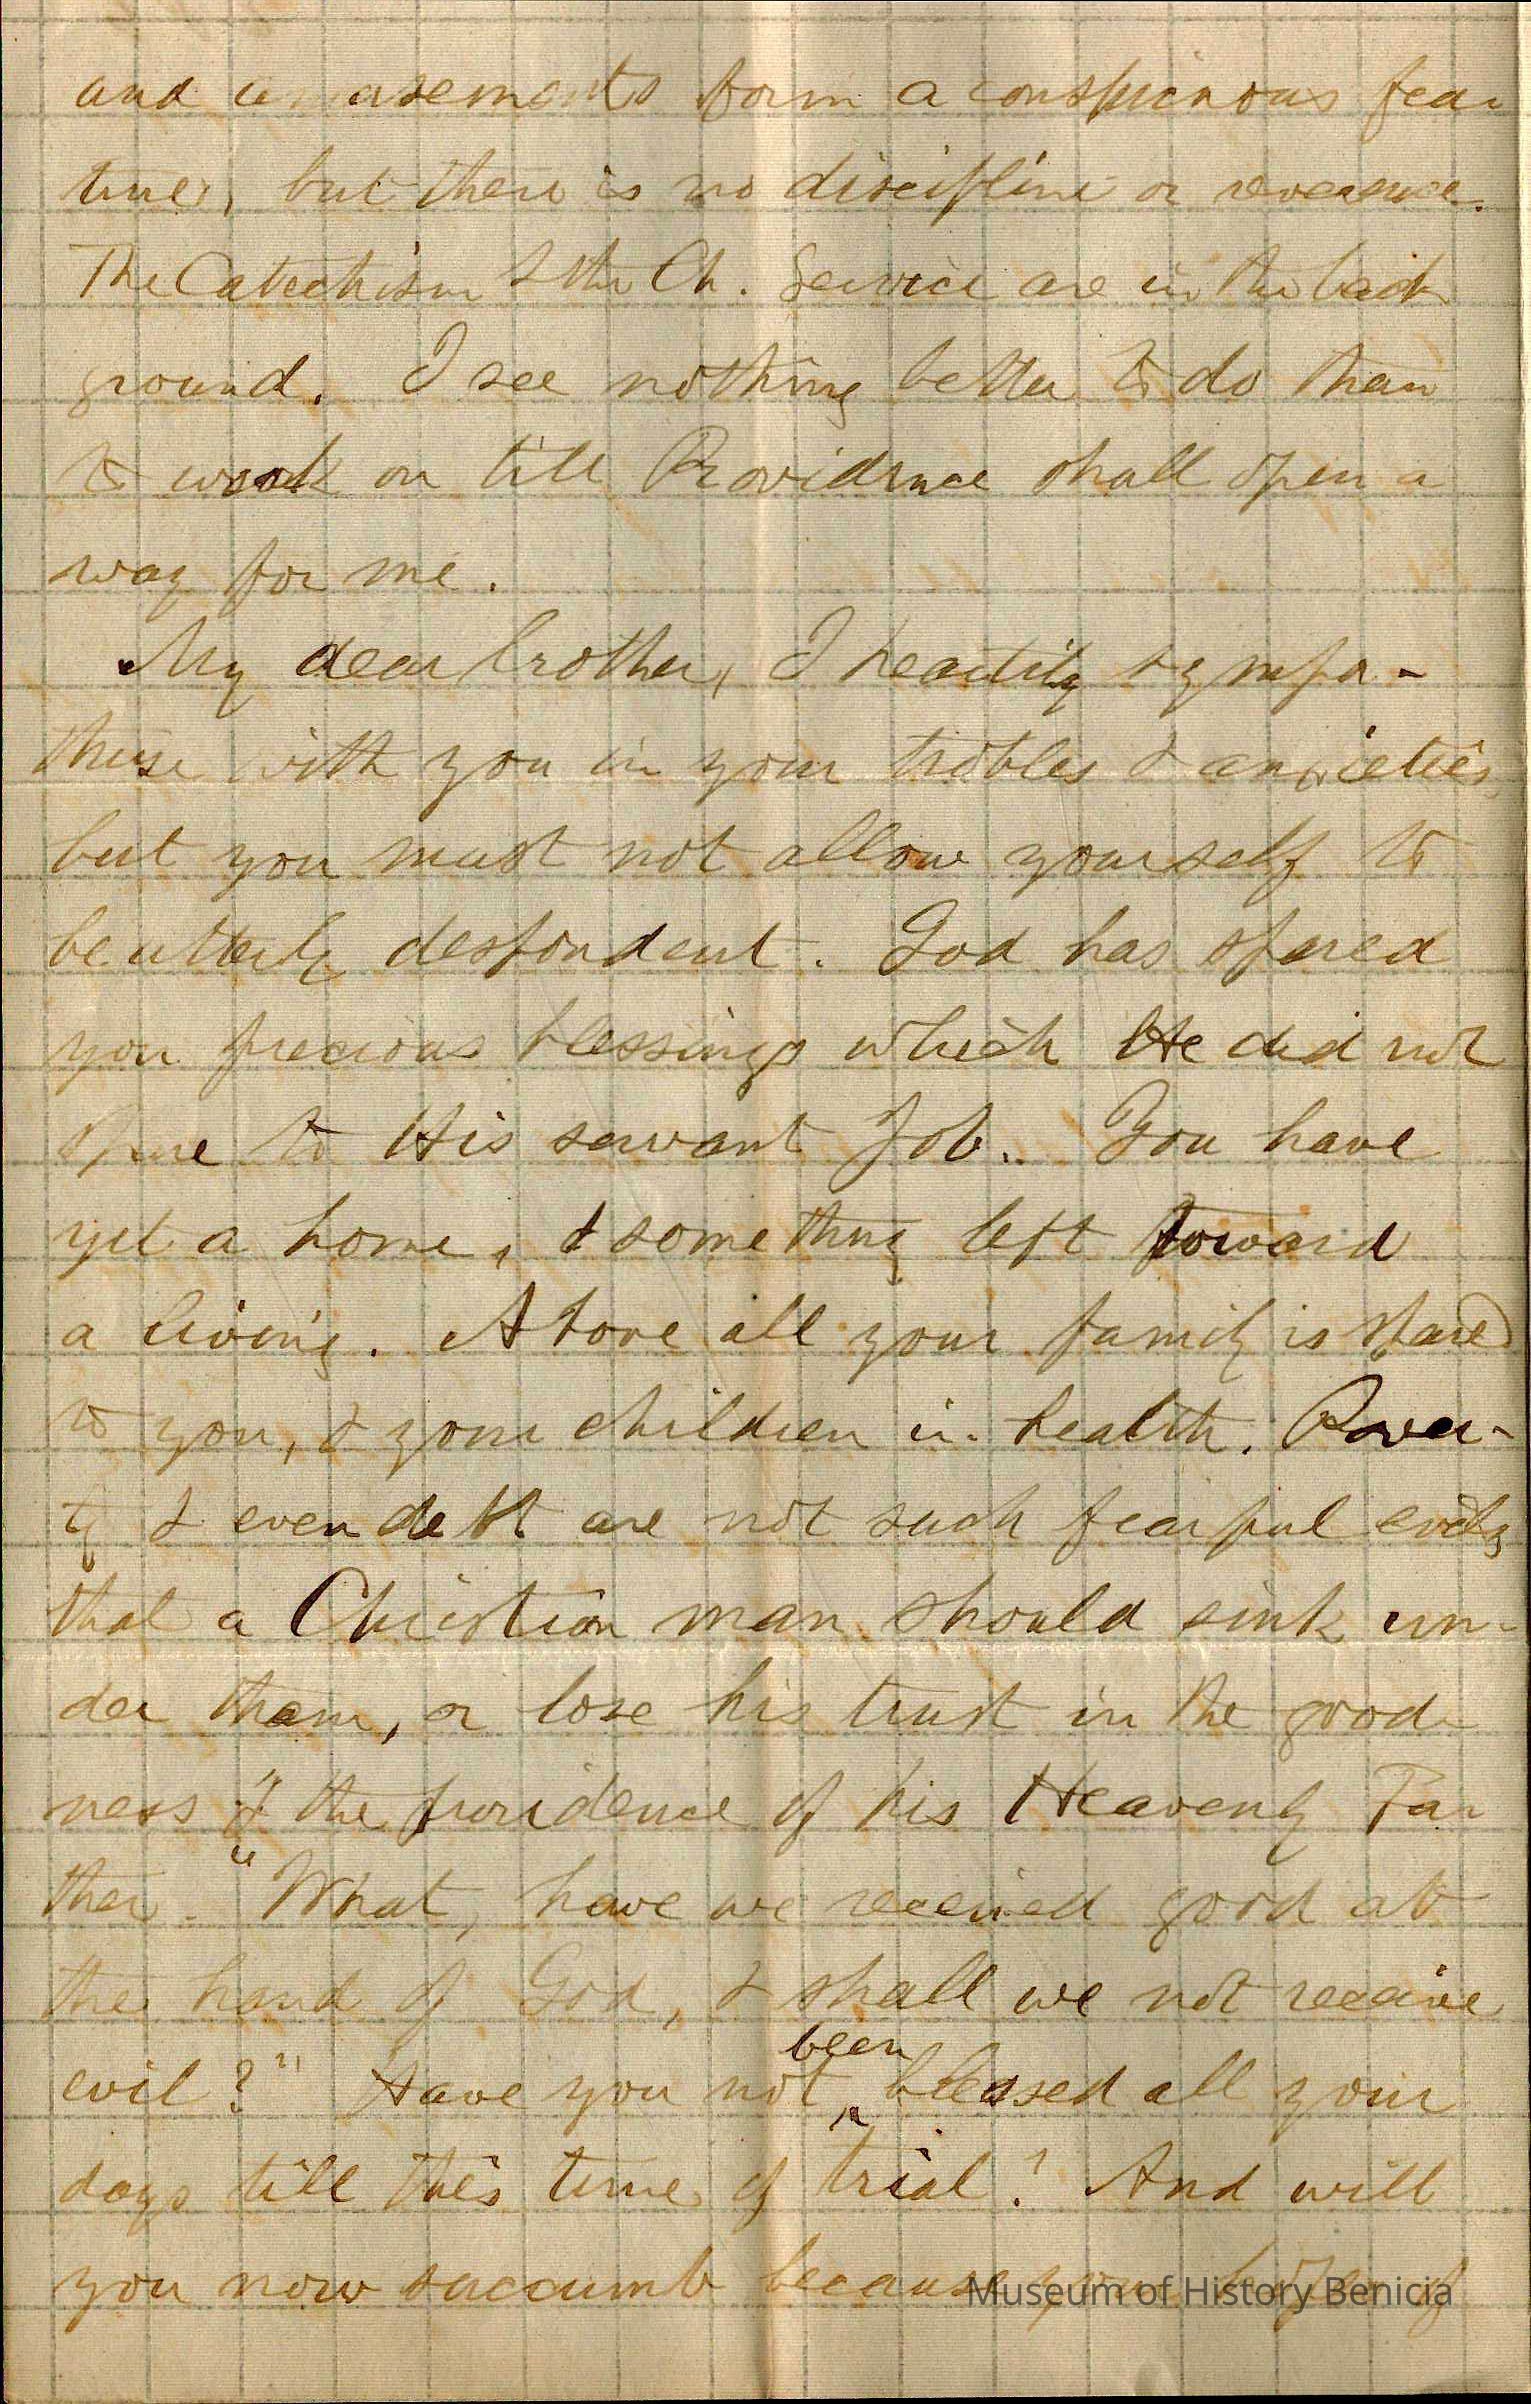 and amusements form a conspicuous fea
ture, but there is no discipline or reverence.
The Catechism & the Ch. Service are in the back
ground. I see nothing better to do than
to work on till Providence shall open a
way for me.
My dear brother, I heartily sympa-
thise with you in your trobles & anxieties,
but you must not allow yourself to
be utterly despondent. God has spared
you precious blessings which He did not
spare to His servant Job. You have
yet a home, & something left toward
a living. Above all your family is spared
to you, & your children in health. Pover-
ty & even debt are not such fearful evils
that a Christian man should sink un-
der them, or lose his trust in the good
ness & the providence of his Heavenly Fa
ther. "What, have we received good at
the hand of God, & shall we not receive
evil?" Have you not been blessed all your
days till this time of trial? And will
you now succumb because your
Museum of History Benicia